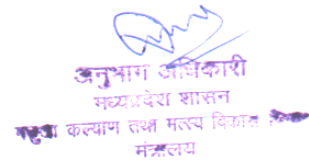 अनुभाग अधिकारी
मध्यप्रदेश शासन
कल्याण तथा मत्स्य विकास
मंत्रालय